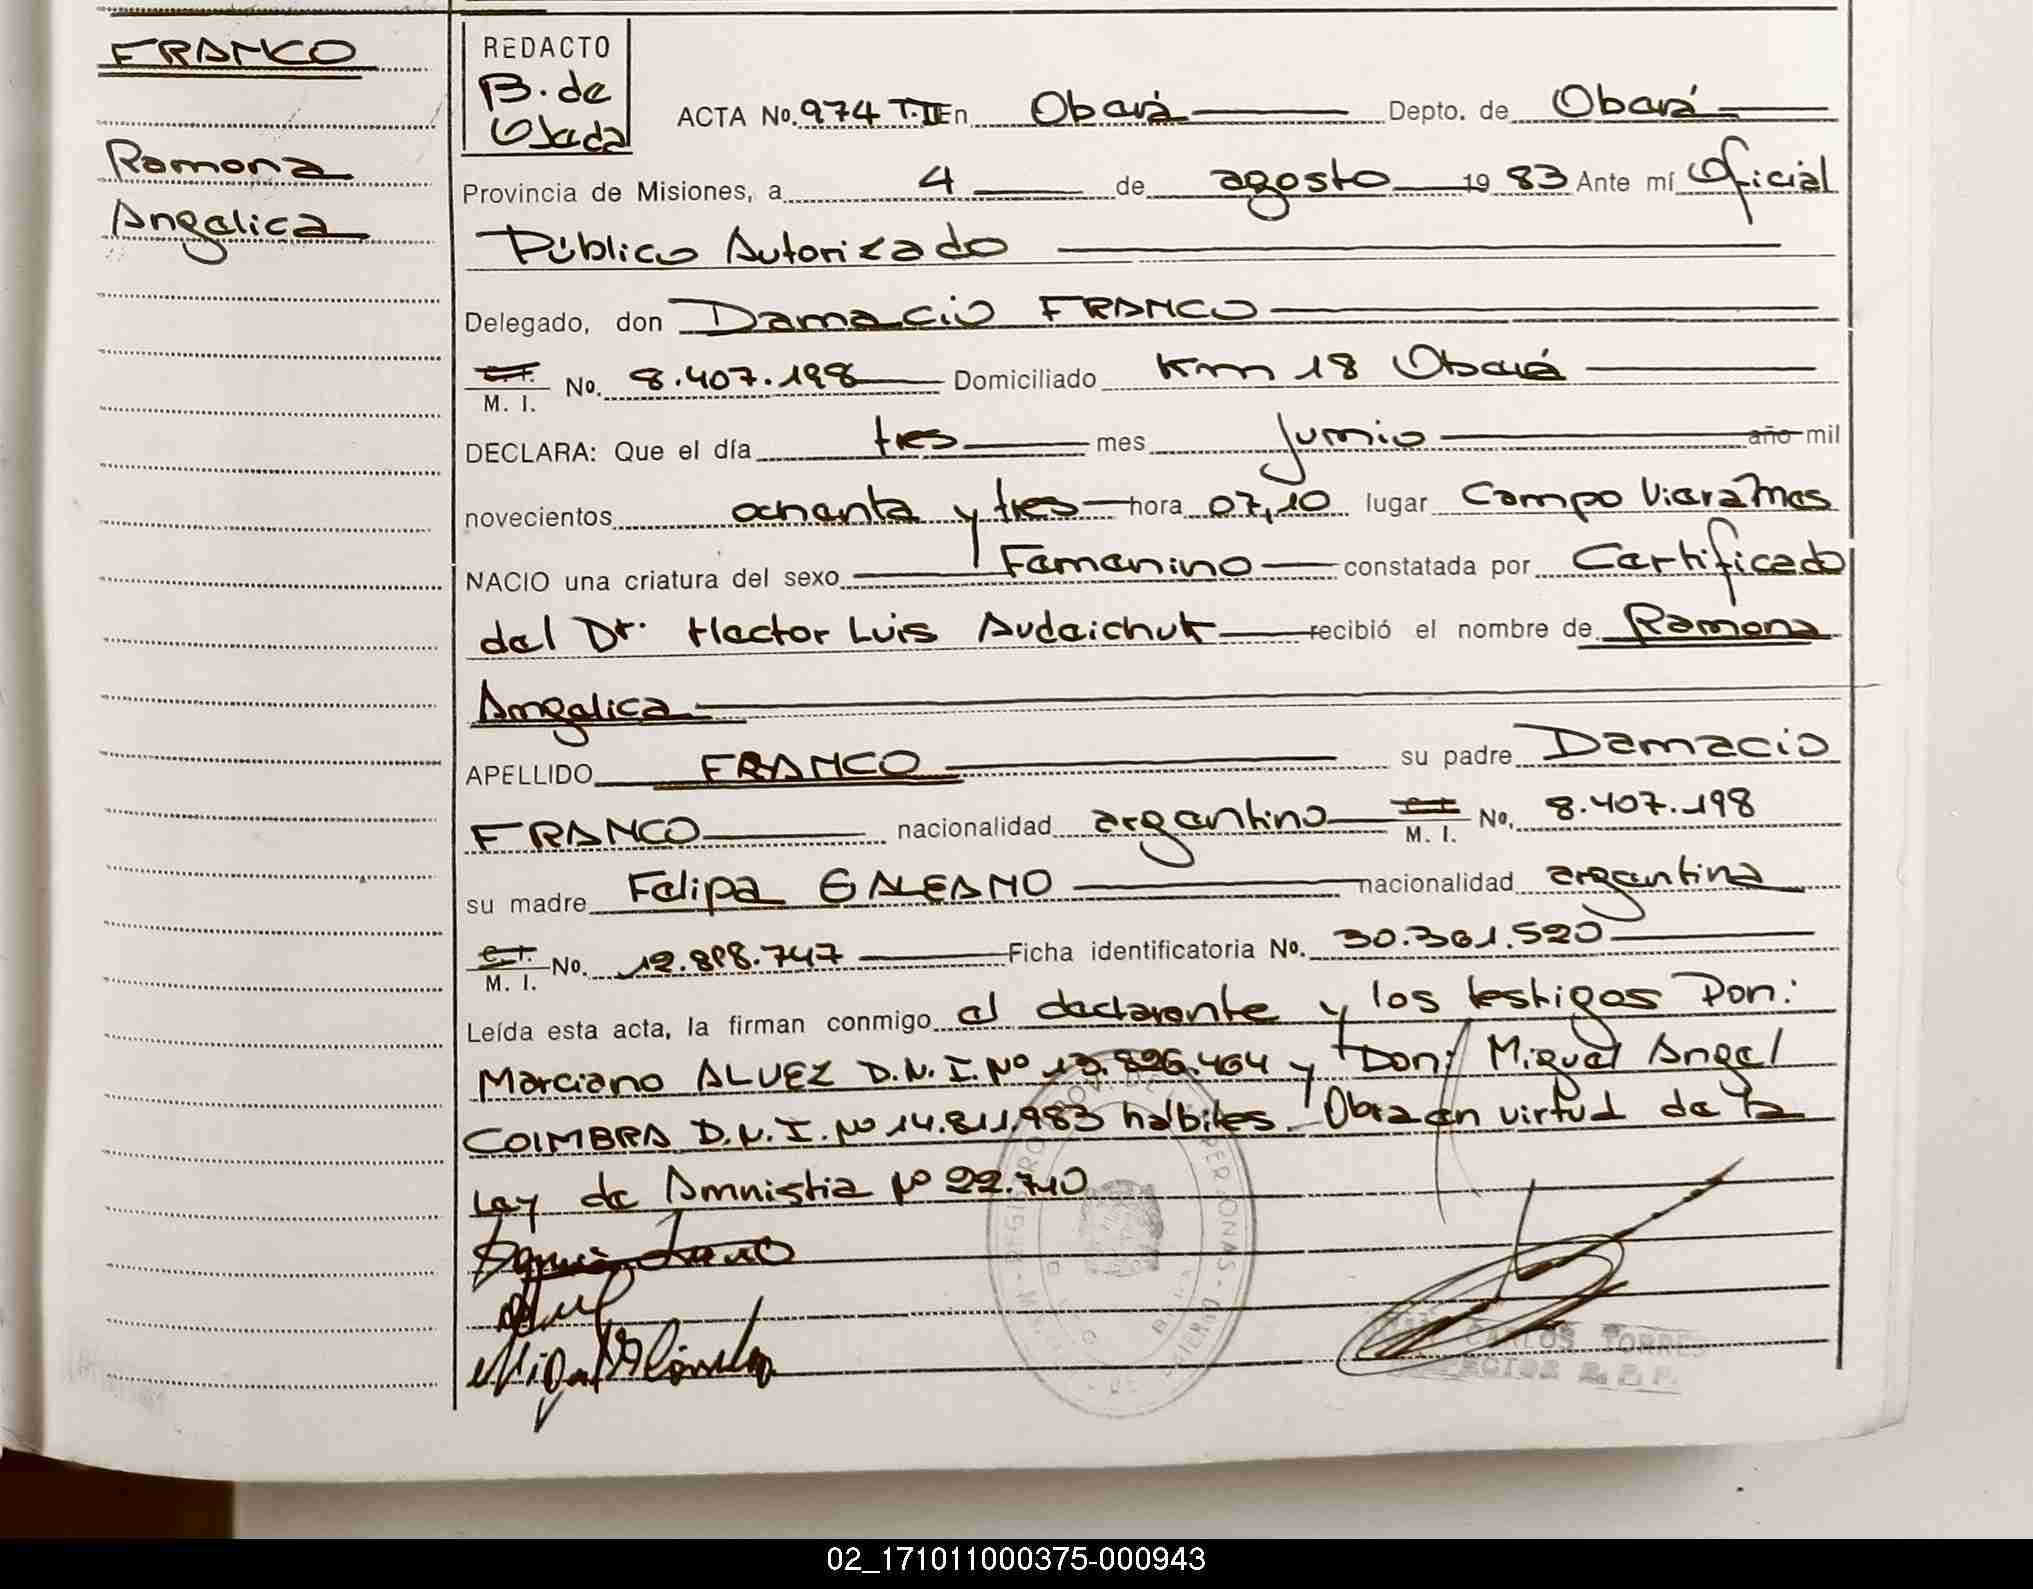 FRANCO
Ramona
Angelica
REDACTO
B. de
Losada
ACTA No. 974 T.II En Oberá Depto. de Oberá
Provincia de Misiones, a 4 de agosto 19 83 Ante mí Oficial
Público Autorizado
Delegado, don Damacio FRANCO
C.I. M. I. No. 8.407.198 Domiciliado Km 18 Oberá
DECLARA: Que el día tres mes junio año mil
novecientos ochenta y tres hora 07,10 lugar Campo Viera Mnes
NACIO una criatura del sexo Femenino constatada por Certificado
del Dr. Hector Luis Audeichuk recibió el nombre de Ramona
Angelica
APELLIDO FRANCO su padre Damacio
FRANCO nacionalidad argentino C.I. M. I. No. 8.407.198
su madre Felipa GALEANO nacionalidad argentina
C.I. M. I. No. 12.898.747 Ficha identificatoria No. 30.361.520
Leída esta acta, la firman conmigo el declarante y los testigos Don:
Marciano ALVEZ D.N.I. Nº 13.826.464 y Don: Miguel Angel
COIMBRA D.N.I. Nº 14.811.983 habiles. Obra en virtud de la
Ley de Amnistia Nº 22.710
CARLOS TORRES
02_171011000375-000943